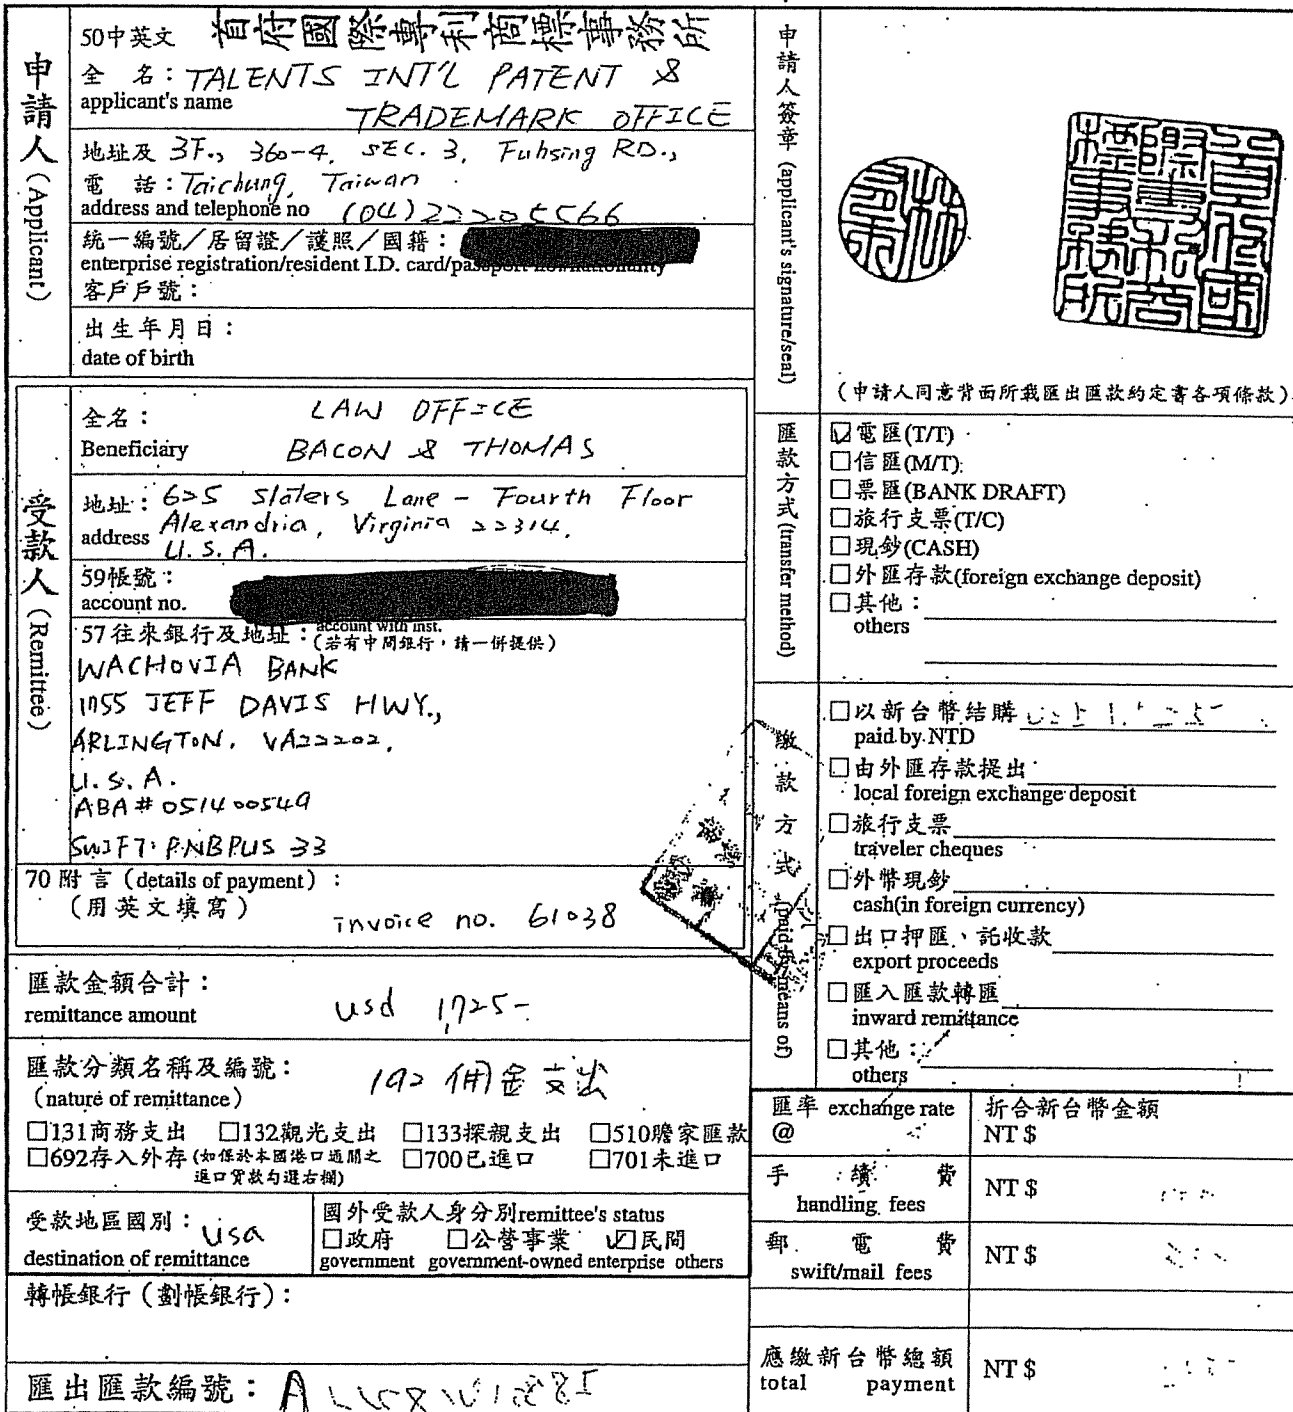 申請人(Applicant)
50中英文 首府國際專利商標事務所
全 名：TALENTS INT'L PATENT &
applicant's name TRADEMARK OFFICE
地址及 3F., 360-4, SEC. 3, Fuhsing RD.,
電 話：Taichung, Taiwan
address and telephone no (04)22205566
統一編號／居留證／護照／國籍：
enterprise registration/resident I.D. card/passport no./nationality
客戶戶號：
出生年月日：
date of birth
申請人簽章 (applicant's signature/seal)
(申請人同意背面所載匯出匯款約定書各項條款)
受款人 (Remittee)
全名： LAW OFFICE
Beneficiary BACON & THOMAS
地址：625 Slaters Lane - Fourth Floor
address Alexandria, Virginia 22314.
U.S.A.
59帳號：
account no.
57往來銀行及地址：account with inst.
(若有中間銀行，請一併提供)
WACHOVIA BANK
1755 JEFF DAVIS HWY.,
ARLINGTON, VA22202,
U.S.A.
ABA# 051400549
SWIFT: PNBPUS 33
70附言 (details of payment)：
(用英文填寫) invoice no. 61038
匯款金額合計：
remittance amount usd 1,725-
匯款分類名稱及編號：
(nature of remittance) 192 佣金支出
□131商務支出 □132觀光支出 □133探親支出 □510贍家匯款
□692存入外存(如係於本國港口通關之進口貨款勾選右欄) □700已進口 □701未進口
受款地區國別：usa
destination of remittance
國外受款人身分別remittee's status
□政府 □公營事業 ☑民間
government government-owned enterprise others
轉帳銀行(劃帳銀行)：
匯出匯款編號：A
匯款方式(transfer method)
☑電匯(T/T)
□信匯(M/T)
□票匯(BANK DRAFT)
□旅行支票(T/C)
□現鈔(CASH)
□外匯存款(foreign exchange deposit)
□其他：
others
繳款方式 (paid by means of)
□以新台幣結購
paid by NTD
□由外匯存款提出
local foreign exchange deposit
□旅行支票
traveler cheques
□外幣現鈔
cash(in foreign currency)
□出口押匯、託收款
export proceeds
□匯入匯款轉匯
inward remittance
□其他：
others
匯率 exchange rate
@
折合新台幣金額
NT $
手續費
handling fees
NT $
郵電費
swift/mail fees
NT $
應繳新台幣總額
total payment
NT $